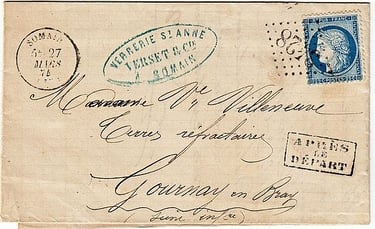 SOMAIN
5E 27
MARS
74
VERRERIE STE ANNE
VERSET & CIE
A SOMAIN
REPUB. FRANC.
Madame Ve Villeneuve
Terres réfractaires
Gournay en Bray
(Seine infre)
APRÈS
LE
DÉPART